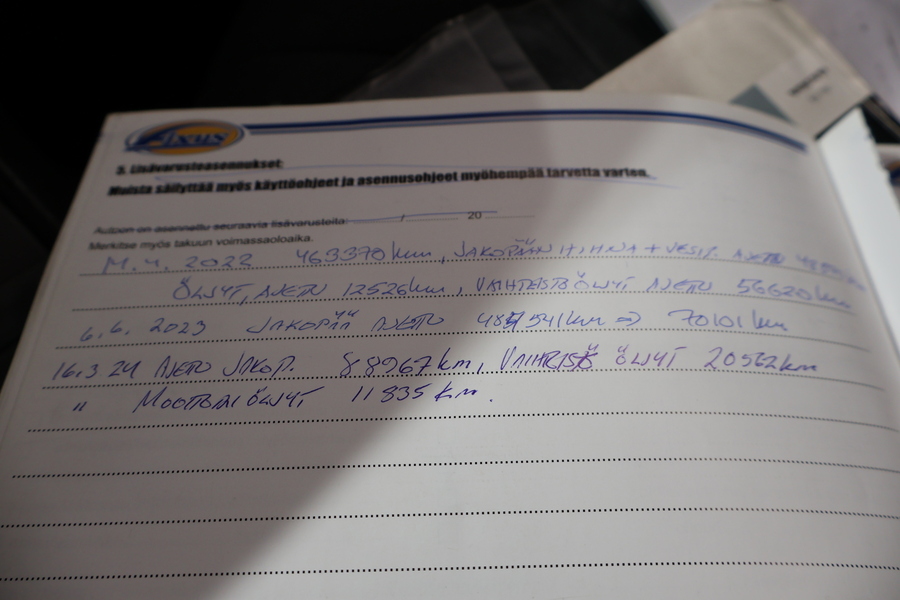 Axus
5. Lisävarusteasennukset:
Muista säilyttää myös käyttöohjeet ja asennusohjeet myöhempää tarvetta varten.
Autoon on asennettu seuraavia lisävarusteita: / 20
Merkitse myös takuun voimassaoloaika.
4. 2022 463370 km, JAKOPÄÄN HIHNA + VESIP. AJETU
ÖLJYT, AJETU 12526 km, VAIHTEISTÖÖLJYT AJETU 56620 km
6.6. 2023 JAKOPÄÄ AJETU 484541 km => 70101 km
16.3 24 AJETU JAKOP. 88967 km, VAIHTEISTÖ ÖLJYT 20562 km
" MOOTTORIÖLJYT 11835 km.